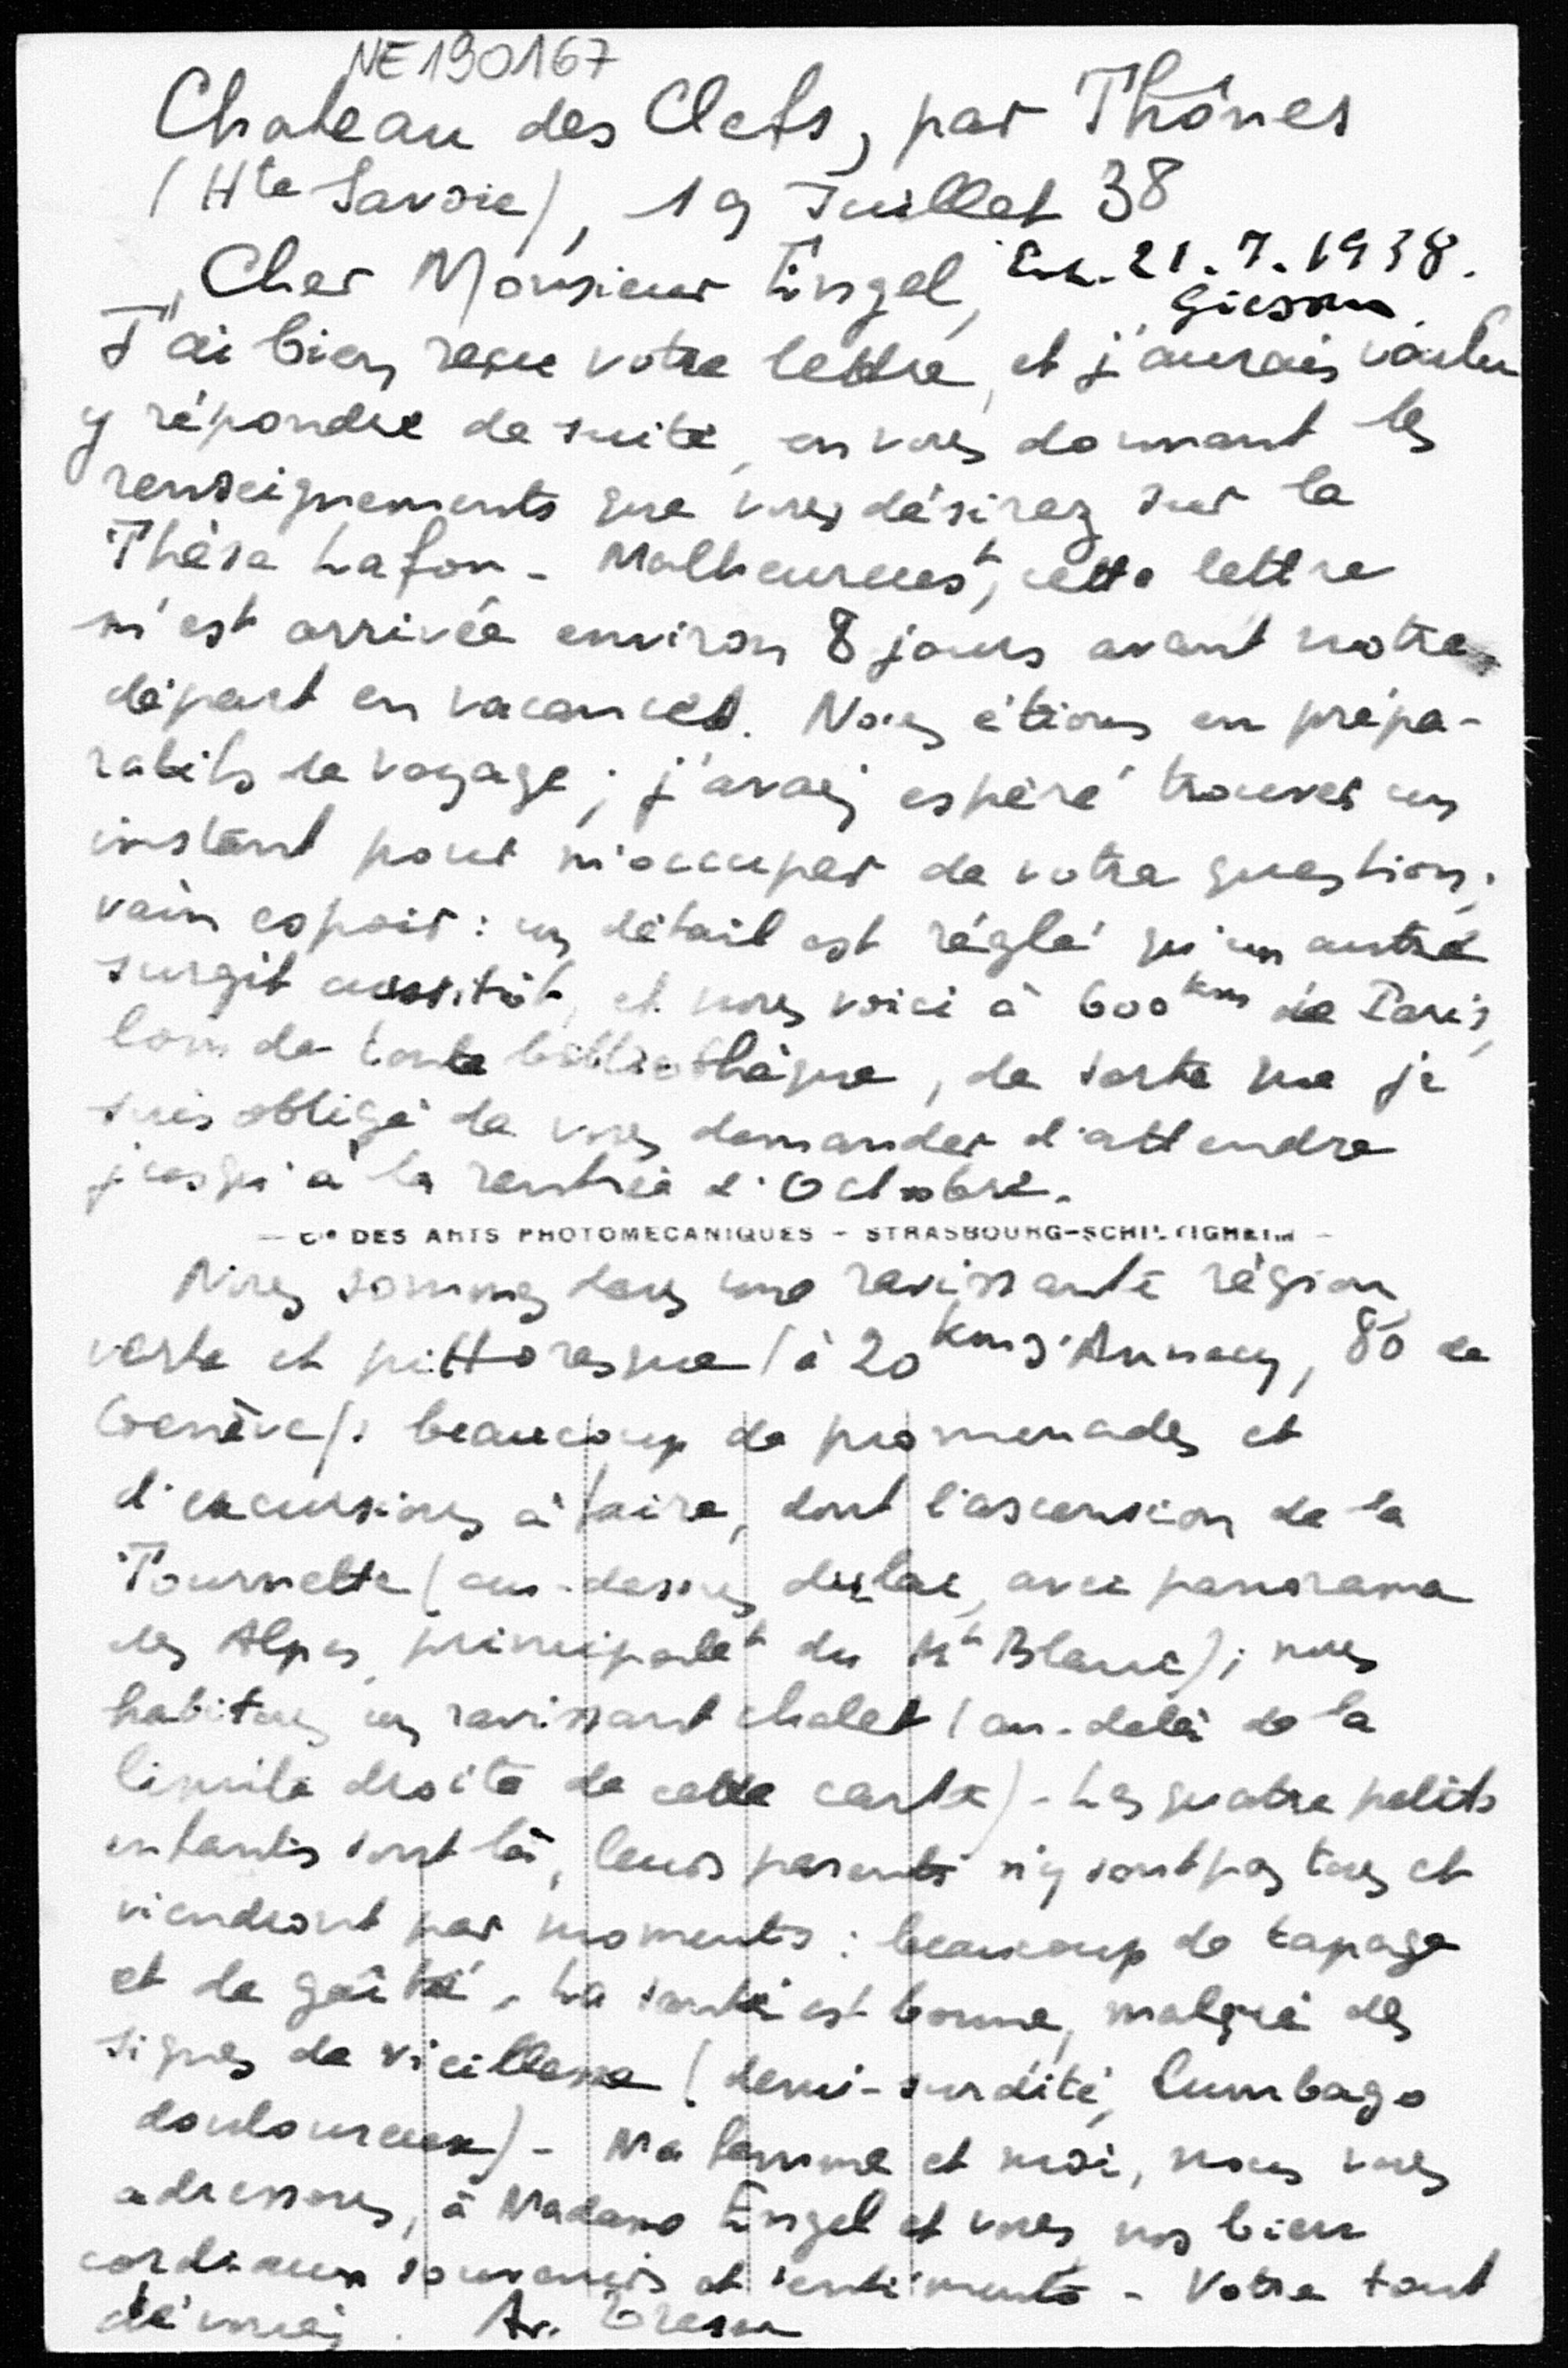 NE190167
Chateau des Clefs, par Thônes
(Hte Savoie), 19 Juillet 38
Cher Monsieur Engel, 21.7.1938.
J'ai bien reçu votre lettre, et j'aurais voulu
y répondre de suite, en vous donnant les
renseignements que vous désirez sur la
Thèse Lafon - Malheureust, cette lettre
m'est arrivée environ 8 jours avant notre
départ en vacances. Nous étions en prépa-
ratifs de voyage; j'avais espéré trouver un
instant pour m'occuper de votre question;
vain espoir: un détail est réglé qu'un autre
surgit aussitôt, et nous voici à 600 km de Paris,
loin de toute bibliothèque, de sorte que je
suis obligé de vous demander d'attendre
jusqu'à la rentrée d'Octobre.
— Cie DES ARTS PHOTOMECANIQUES - STRASBOURG-SCHILTIGHEIM —
Nous sommes dans une ravissante région,
verte et pittoresque (à 20 Km d'Annecy, 80 de
Genève): beaucoup de promenades et
d'excursions à faire, dont l'ascension de la
Tournette (au-dessus du lac, avec panorama
des Alpes, principalet du Mt Blanc); nous
habitons un ravissant chalet (au-delà de la
limite droite de cette carte) - Les quatre petits
enfants sont là, leurs parents n'y sont pas tous et
viendront par moments: beaucoup de tapage
et de gaîté. La santé est bonne, malgré des
signes de vieillesse (demi-surdité, lumbago
douloureux) - Ma femme et moi, nous vous
adressons, à Madame Engel et vous nos bien
cordiaux souvenirs et sentiments - Votre tout
dévoué. Ar.